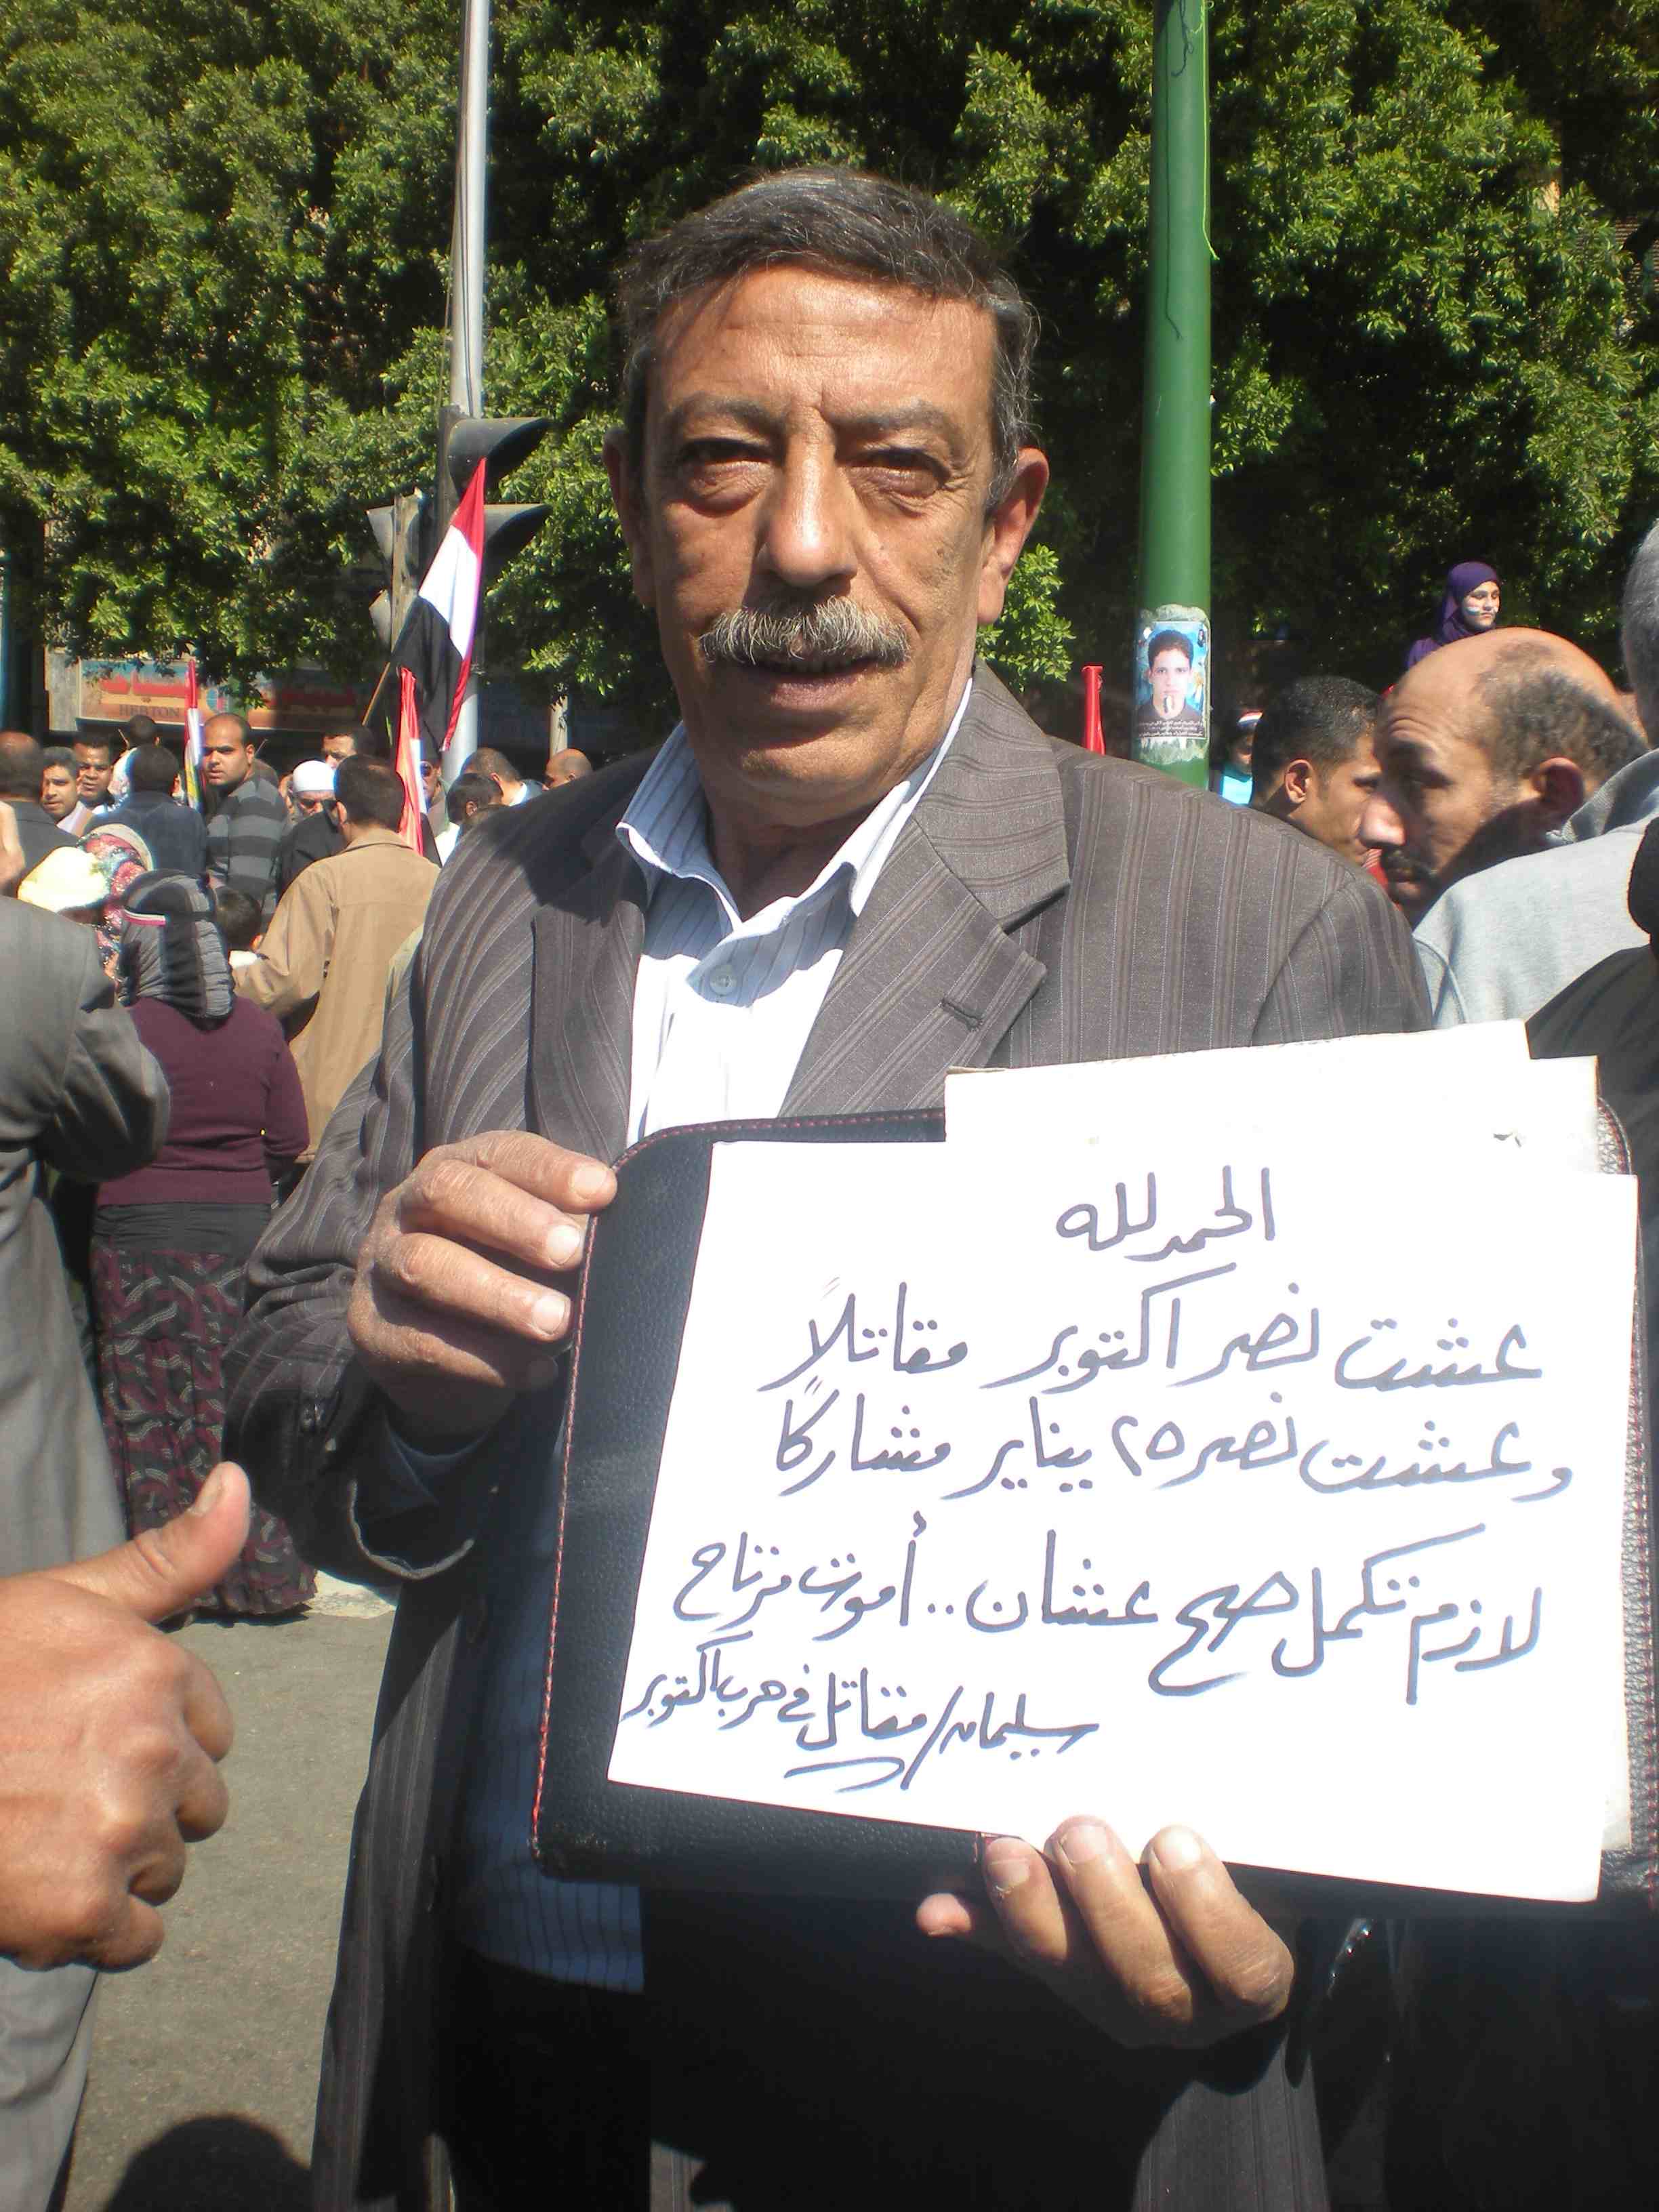 الحمد لله
عشت نصر اكتوبر مقاتلاً
وعشت نصر ٢٥ يناير مشاركاً
لازم تكمل صح عشان .. أموت مرتاح
سليمان / مقاتل في حرب اكتوبر